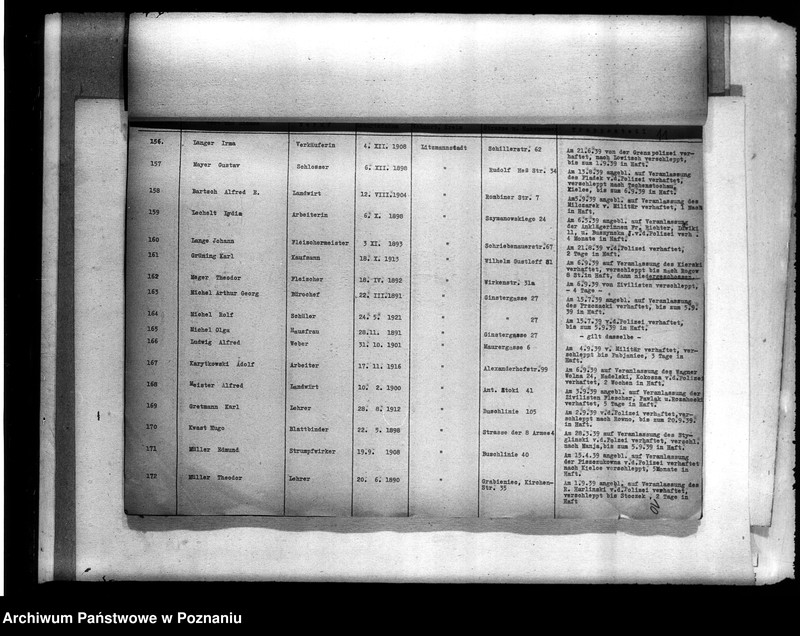 156. Langer Irma Verkäuferin 4. XII. 1908 Litzmannstadt Schillerstr. 62 Am 21.6.39 von der Grenzpolizei ver-
haftet, nach Lowitsch verschleppt,
bis zum 1.9.39 in Haft.
157 Mayer Gustav Schlosser 6. XII. 1898 " Rudolf Heß Str. 34 Am 13.8.39 angebl. auf Veranlassung
des v.d.Polizei verhaftet,
verschleppt nach
Kielce, bis zum 6.9.39 in Haft.
158 Bartsch Alfred E. Landwirt 12. VIII.1904. " Robiner Str. 7 Am5.9.39 angebl. auf Veranlassung des
v. Militär verhaftet, 1 Nacht
in Haft.
159 Lechelt Lydia Arbeiterin 6. X. 1898 " Szymanowskiego 24 Am 6.5.39 angebl. auf Veranlassung
der Anklägerinnen Fr. Richter,
11, u. v.d.Polizei verh.
4 Monate in Haft.
160 Lange Johann Fleischermeister 3 XI. 1893 " Schriebenauerstr.67 Am 21.8.39 v.d.Polizei verhaftet,
2 Tage in Haft.
161 Grüning Karl Kaufmann 18. X. 1913 " Wilhelm Gustloff 81 Am 6.9.39 auf Veranlassung des Kierski
verhaftet, verschleppt bis nach Rogow
8 St.in Haft, dann niedergeschossen.
162 Mager Theodor Fleischer 18. IV. 1892 " Wirkerstr. 31a Am 6.9.39 von Zivilisten verschleppt,
- 4 Tage -
163 Michel Arthur Georg Bürochef 22. III.1891 " Ginstergasse 27 Am 15.7.39 angebl. auf Veranlassung
des verhaftet, bis zum 5.9.
39 in Haft.
164 Michel Rolf Schüler 24. 5. 1921 " " 27 Am 15.7.39 v.d.Polizei verhaftet,
bis zum 5.9.39 in Haft.
165 Michel Olga Hausfrau 28.11. 1891 " Ginstergasse 27 - gilt dasselbe -
166 Ludwig Alfred Weber 31. 10. 1901 " Maurergasse 6 Am 4.9.39 v. Militär verhaftet, ver-
schleppt bis Pabjanice, 3 Tage in
Haft.
167 Karytkowski Adolf Arbeiter 17. 11. 1916 " Alexanderhofstr.99 Am 6.9.39 auf Veranlassung des Wagner
Wolna 24, Nadolski, Kokosza v.d.Polizei
verhaftet, 2 Wochen in Haft.
168 Meister Alfred Landwirt 10. 2. 1900 " Ant. Stoki 41 Am 3.9.39 angebl. auf Veranlassung der
Zivilisten Flescher, Pawlak u.
verhaftet, 3 Tage in Haft.
169 Gretmann Karl Lehrer 28. 8. 1912 " Buschlinie 105 Am 2.9.39 v.d.Polizei verhaftet,ver-
schleppt nach Rowno, bis zum 20.9.39.
in Haft.
170 Kwast Hugo Blattbinder 22. 5. 1898 " Strasse der 8 Armee4 Am 28.3.39 auf Veranlassung des Sty-
glinski v.d.Polizei verhaftet, verschl.
nach bis zum 5.9.39 in Haft.
171 Müller Edmund Strumpfwirker 19.9. 1908 " Buschlinie 40 Am 15.4.39 angebl. auf Veranlassung
der v.d.Polizei verhaftet
nach Kielce verschleppt, 5Monate in
Haft.
172 Müller Theodor Lehrer 20. 6. 1890 " Grabieniec, Kirchen-
Str. 35 Am 1.9.39 angebl. auf Veranlassung des
R. Karlinski v.d.Polizei verhaftet,
verschleppt bis Stoczek, 2 Tage in
Haft
Archiwum Państwowe w Poznaniu